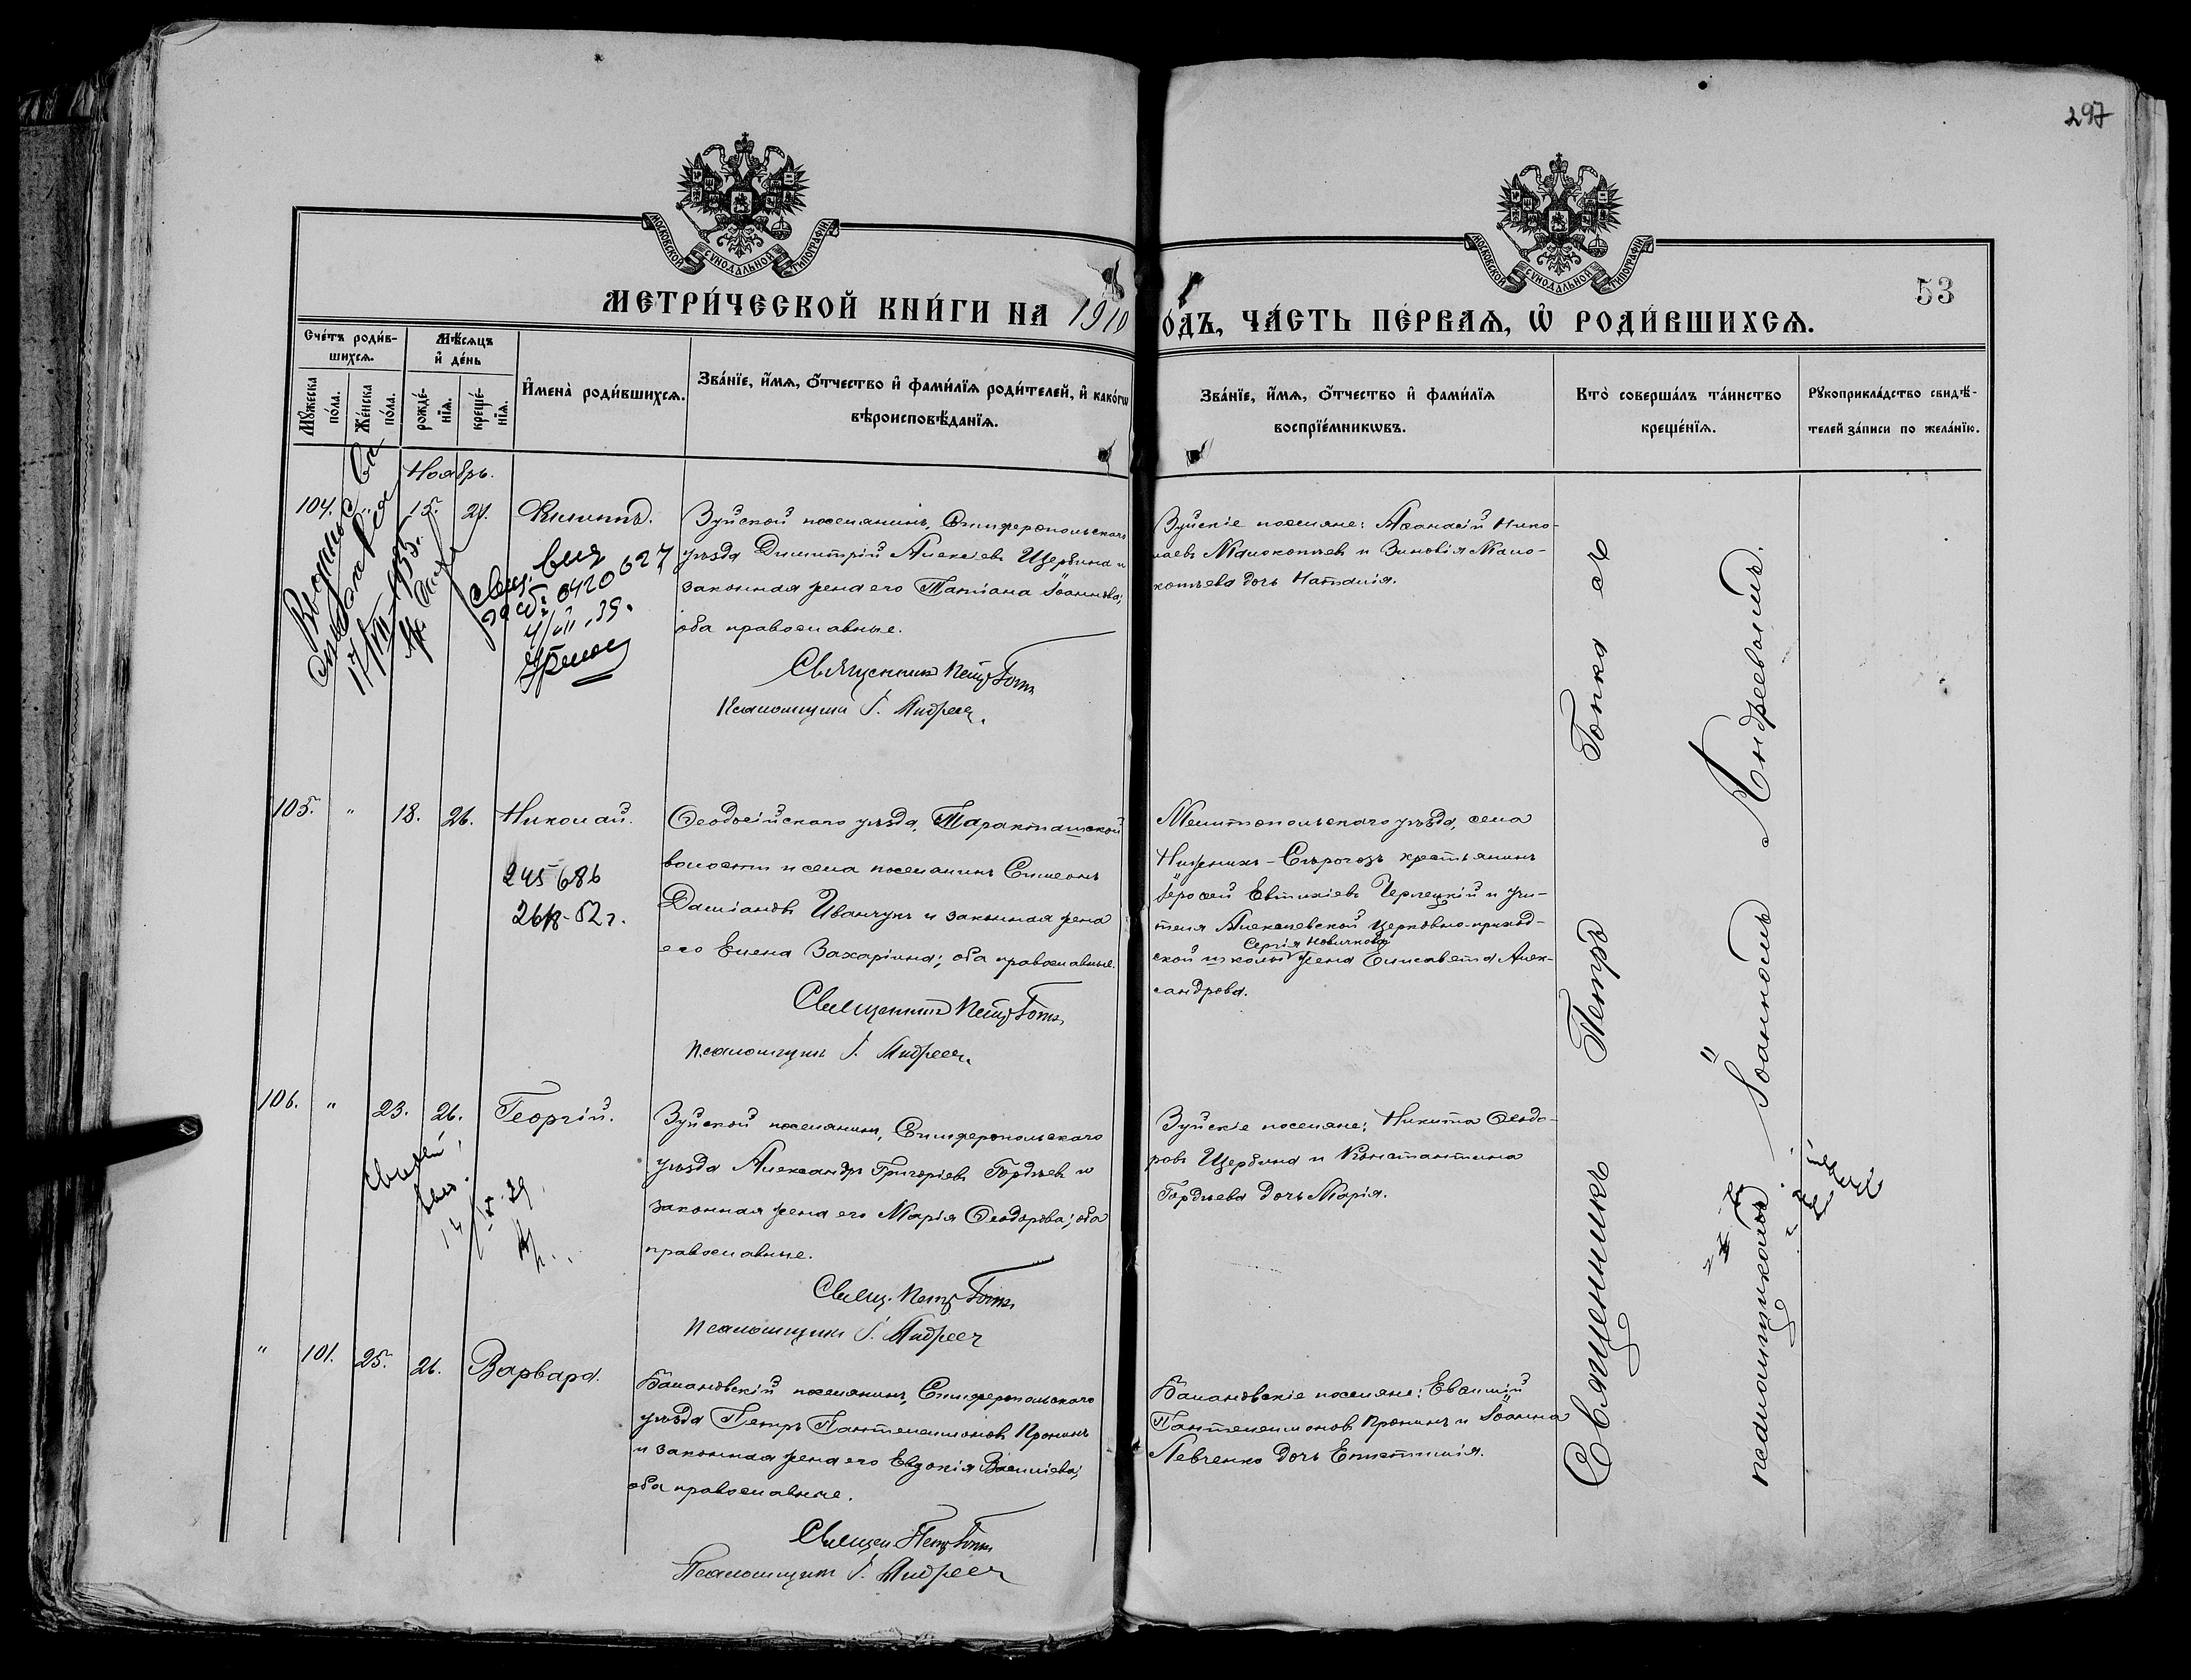 297
МОСКОВСКОЙ СУНОДАЛЬНОЙ ТИПОГРАФІИ
МОСКОВСКОЙ СУНОДАЛЬНОЙ ТИПОГРАФІИ
53
МЕТРИ́ЧЕСКОЙ КНИ́ГИ НА 1910
О́ДЪ, ЧА́СТЬ ПЕ́РВАѦ, Ѡ҆ РОДИ́ВШИХСѦ.
Сче́тъ роди́в-
шихсѧ.
Мѣ́сѧцъ
и҆ де́нь
Мꙋ́жеска
по́ла.
Же́нска
по́ла.
рожде́-
нїѧ.
креще́-
нїѧ.
И҆мена̀ роди́вшихсѧ.
Зва́нїе, и҆́мѧ, о҆́тчество и҆ фами́лїѧ роди́телей, и҆ како́гѡ
вѣроисповѣ́данїѧ.
Зва́нїе, и҆́мѧ, о҆́тчество и҆ фами́лїѧ
воспрїе́мникѡвъ.
Кто̀ соверша́лъ та́инство
креще́нїѧ.
Рꙋкоприкла́дство свидѣ́-
телей за́писи по жела́нїю.
Ноябрь.
104. " 15. 21. Филиппъ.
Зуйской поселянинъ, Симферопольскаго
уѣзда Димитрій Алексіевъ Щербина и
законная жена его Татіана Іоаннова;
оба православные.
Священникъ Петръ Гопка
Псаломщикъ І. Андреев.
Зуйскіе поселяне: Аѳанасій Нико-
лаевъ Малокотьевъ и Зиновія Мало-
котьева дочь Наталія.
17/VII 1935
0420627
4/VII.39.
105. " 18. 26. Николай.
245686
52 г.
Ѳеодосійскаго уѣзда, Таракташской
волости и села поселянинъ Симеонъ
Даміановъ Иванчукъ и законная жена
его Елена Захаріина; оба православные.
Священникъ Петръ Гопка
Псаломщикъ І. Андреев.
Мелитопольскаго уѣзда, села
Нижнихъ-Сѣрогозъ крестьянинъ
Іероѳей Евтихіевъ Черлецкій и учи-
теля Алексіевской церковно-приход-
Сергія Новичкова
ской школы жена Елисавета Алек-
сандрова.
106. " 23. 26. Георгій.
Зуйской поселянинъ, Симферопольскаго
уѣзда Александръ Григоріевъ Гордѣевъ и
законная жена его Марія Ѳеодорова; оба
православные.
Свящ. Петръ Гопка
Псаломщикъ І. Андреев
Зуйскіе поселяне: Никита Ѳеодо-
ровъ Щербина и Константина
Гордѣева дочь Марія.
" 101. 25. 26. Варвара.
Балановскій поселянинъ, Симферопольскаго
уѣзда Петръ Пантелеимоновъ Пронинъ
и законная жена его Евдокія Василіева;
оба православные.
Священ. Петръ Гопка
Псаломщикъ І. Андреев
Балановскіе поселяне: Евсимій
Пантелеимоновъ Пронинъ и Іоанна
Левченко дочь Епистимія.
Священникъ Петръ Гопка съ
псаломщикомъ Іоанномъ Андреевымъ.